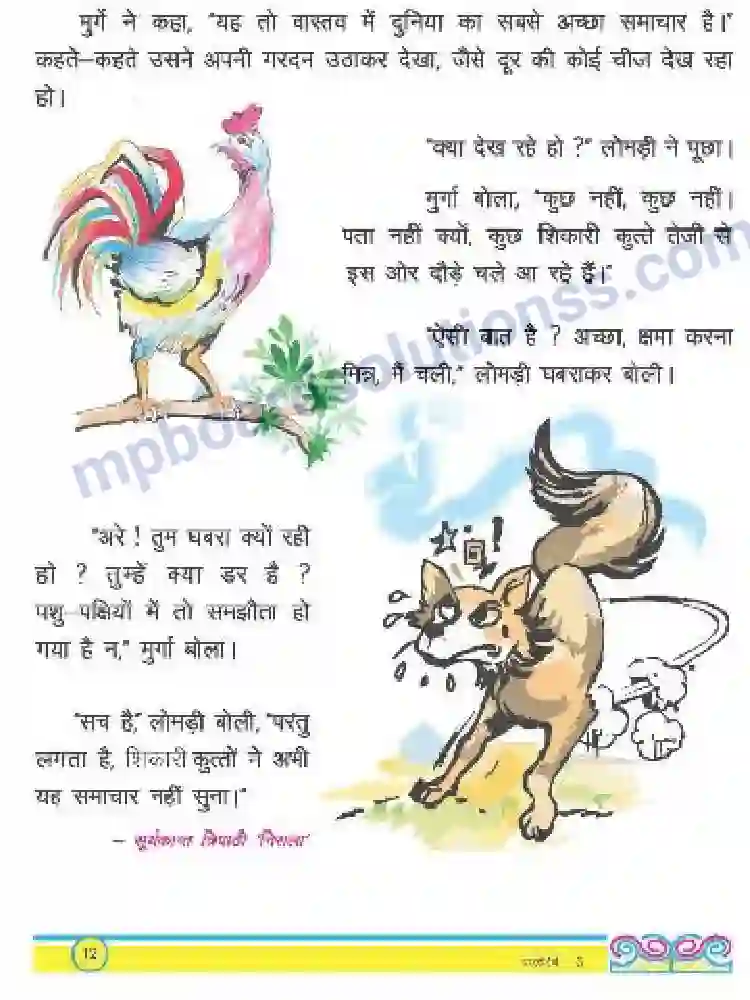 मुर्गे ने कहा, "यह तो वास्तव में दुनिया का सबसे अच्छा समाचार है।"
कहते–कहते उसने अपनी गरदन उठाकर देखा, जैसे दूर की कोई चीज देख रहा
हो।
"क्या देख रहे हो ?" लोमड़ी ने पूछा।
मुर्गा बोला, "कुछ नहीं, कुछ नहीं।
पता नहीं क्यों, कुछ शिकारी कुत्ते तेजी से
इस ओर दौड़े चले आ रहे हैं।"
"ऐसी बात है ? अच्छा, क्षमा करना
मित्र, मैं चली," लोमड़ी घबराकर बोली।
"अरे ! तुम घबरा क्यों रही
हो ? तुम्हें क्या डर है ?
पशु–पक्षियों में तो समझौता हो
गया है न," मुर्गा बोला।
"सच है," लोमड़ी बोली, "परंतु
लगता है, शिकारी कुत्तों ने अभी
यह समाचार नहीं सुना।"
– सूर्यकान्त त्रिपाठी 'निराला'
mpboardsolutionss.com
12
3